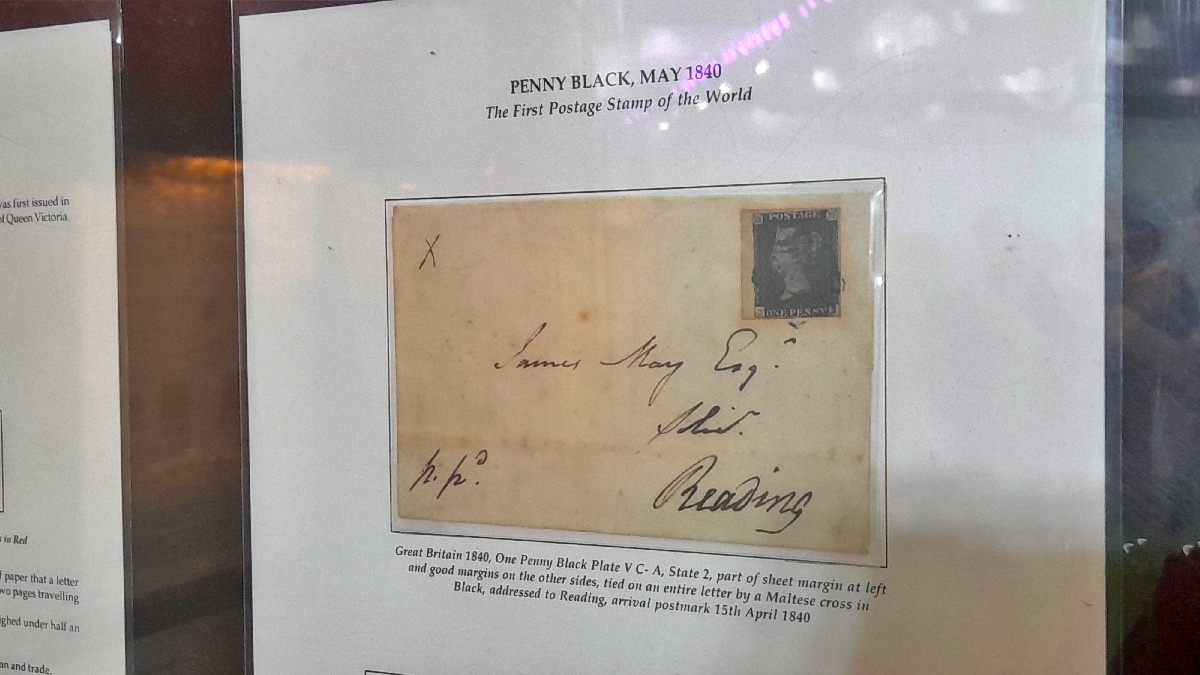 PENNY BLACK, MAY 1840
The First Postage Stamp of the World
was first issued in
of Queen Victoria.
X
POSTAGE
ONE PENNY
James May Esqr
p. pd.
Reading
Great Britain 1840, One Penny Black Plate V C- A, State 2, part of sheet margin at left
and good margins on the other sides, tied on an entire letter by a Maltese cross in
Black, addressed to Reading, arrival postmark 15th April 1840
in Red
paper that a letter
two pages travelling
under half an
and trade.